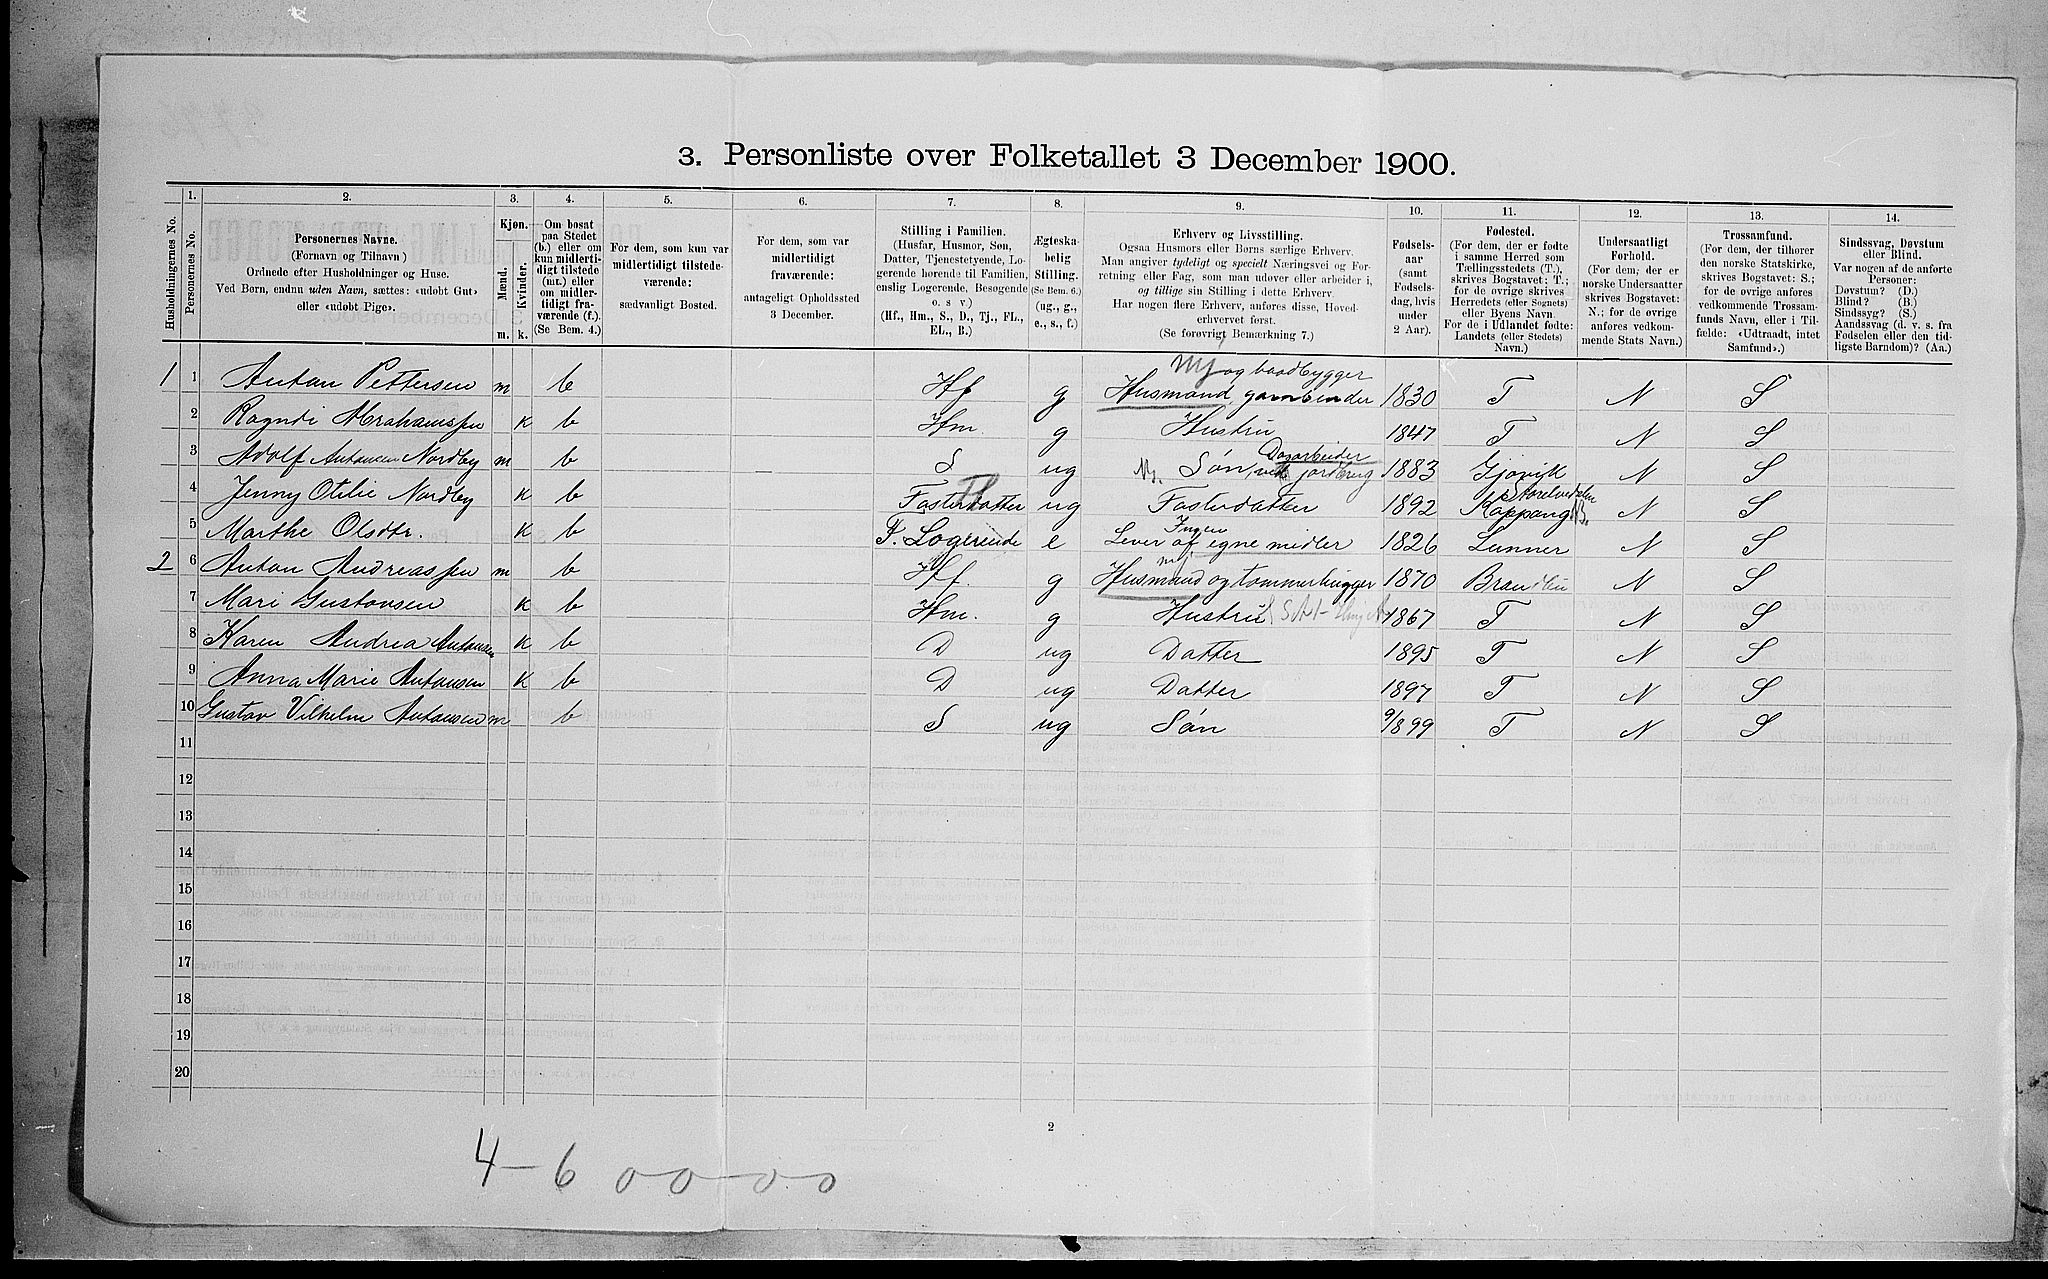 3. Personliste over Folketallet 3 December 1900.
Husholdningernes No.
1.
Personernes No.
2.
Personernes Navne.
(Fornavn og Tilnavn)
Ordnede efter Husholdninger og Huse.
Ved Børn, endnu uden Navn, sættes: «udøbt Gut»
eller «udøbt Pige».
3.
Kjøn.
Mænd.
Kvinder.
m. k.
4.
Om bosat
paa Stedet
(b.) eller om
kun midlerti-
digt tilstede
(mt.) eller
om midler-
tidigt fra-
værende (f.).
(Se Bem. 4.)
5.
For dem, som kun var
midlertidigt tilstede-
værende:
sædvanligt Bosted.
6.
For dem, som var
midlertidigt
fraværende:
antageligt Opholdssted
3 December.
7.
Stilling i Familien.
(Husfar, Husmor, Søn,
Datter, Tjenestetyende, Lo-
gerende hørende til Familien,
enslig Logerende, Besøgende
o. s. v.)
(Hf., Hm., S., D., Tj., FL.,
EL., B.)
8.
Ægteska-
belig
Stilling.
(Se Bem. 6.)
(ug., g.,
e., s., f.)
9.
Erhverv og Livsstilling.
Ogsaa Husmors eller Børns særlige Erhverv.
Man angiver tydeligt og specielt Næringsvei og For-
retning eller Fag, som man udøver eller arbeider i,
og tillige sin Stilling i dette Erhverv.
Har nogen flere Erhverv, anføres disse, Hoved-
erhvervet først.
(Se forøvrigt Bemærkning 7.)
10.
Fødsels-
aar
(samt
Fødsels-
dag, hvis
under
2 Aar).
11.
Fødested.
(For dem, der er fødte
i samme Herred som
Tællingsstedets (T.),
skrives Bogstavet: T.;
for de øvrige skrives
Herredets (eller Sognets)
eller Byens Navn.
For de i Udlandet fødte:
Landets (eller Stedets)
Navn.)
12.
Undersaatligt
Forhold.
(For dem, der er
norske Undersaatter
skrives Bogstavet:
N.; for de øvrige
anføres vedkom-
mende Stats Navn.)
13.
Trossamfund.
(For dem, der tilhører
den norske Statskirke,
skrives Bogstavet: S.;
for de øvrige anføres
vedkommende Trossam-
funds Navn, eller i Til-
fælde: «Udtraadt, intet
Samfund».)
14.
Sindssvag, Døvstum
eller Blind.
Var nogen af de anførte
Personer:
Døvstum? (D.)
Blind? (B.)
Sindssyg? (S.)
Aandssvag (d. v. s. fra
Fødselen eller den tid-
ligste Barndom)? (Aa.)
og baadbygger
1 1 Anton Pettersen m b Hf g Husmand, garnbinder 1830 T N S
2 Ragndi Abrahamssen k b Hm. g Hustru 1847 T N S
Dagarbeider
3 Adolf Antonsen Nordby m b S ug Søn, ved jordbrug 1883 Gjøvik N S
Storelvedalen
4 Jenny Otilie Nordby k b Fosterdatter ug Fosterdatter 1892 Koppang N S
Ingen
5 Marthe Olsdtr. k b F. Logerende e Lever af egne midler 1826 Lunner N S
2 6 Anton Andreassen m b Hf. g Husmand og tømmerhugger 1870 Brandbu N S
7 Mari Gustavsen k b Hm. g Hustru 1867 T N S
8 Karen Andrea Antonsen k b D ug Datter 1895 T N S
9 Anna Marie Antonsen k b D ug Datter 1897 T N S
10 Gustav Vilhelm Antonsen m b S ug Søn 9/8 99 T N S
11
12
13
14
15
16
17
18
19
20
2
4 - 6 0 0 - 0 - 0